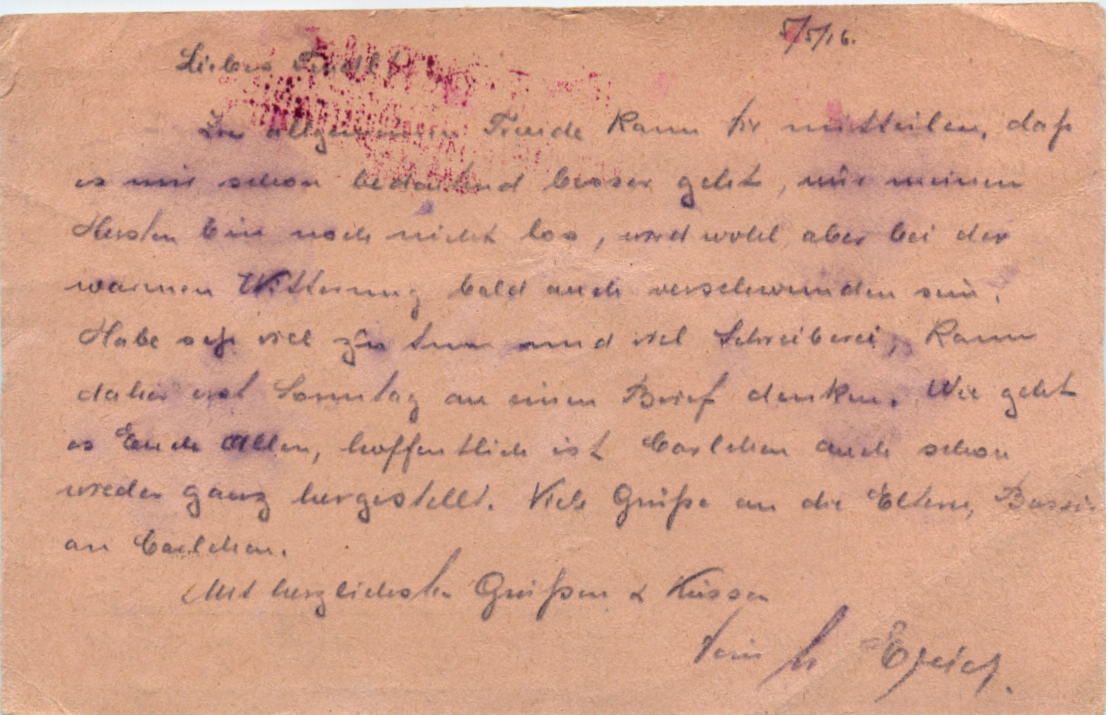 5/5/16.
Liebes
Zur allgemeinen Freude kann Dir mitteilen, daß
es mir schon bedeutend besser geht, nur meinen
Husten bin noch nicht los, wird wohl aber bei der
warmen Witterung bald auch verschwunden sein.
Habe sehr viel zu tun und viel Schreiberei, kann
daher erst Sonntag an einen Brief denken. Wie geht
es Euch Allen, hoffentlich ist Carlchen auch schon
wieder ganz hergestellt. Viele Grüße an die Eltern,
an Carlchen.
Mit herzlichsten Grüßen & Küssen
Dein Erich.